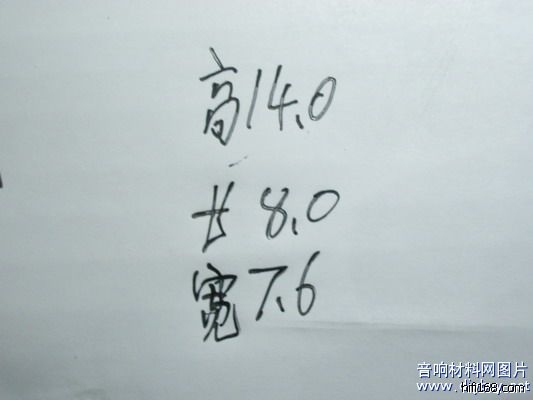 高14.0
长8.0
宽7.6
音响材料网图片